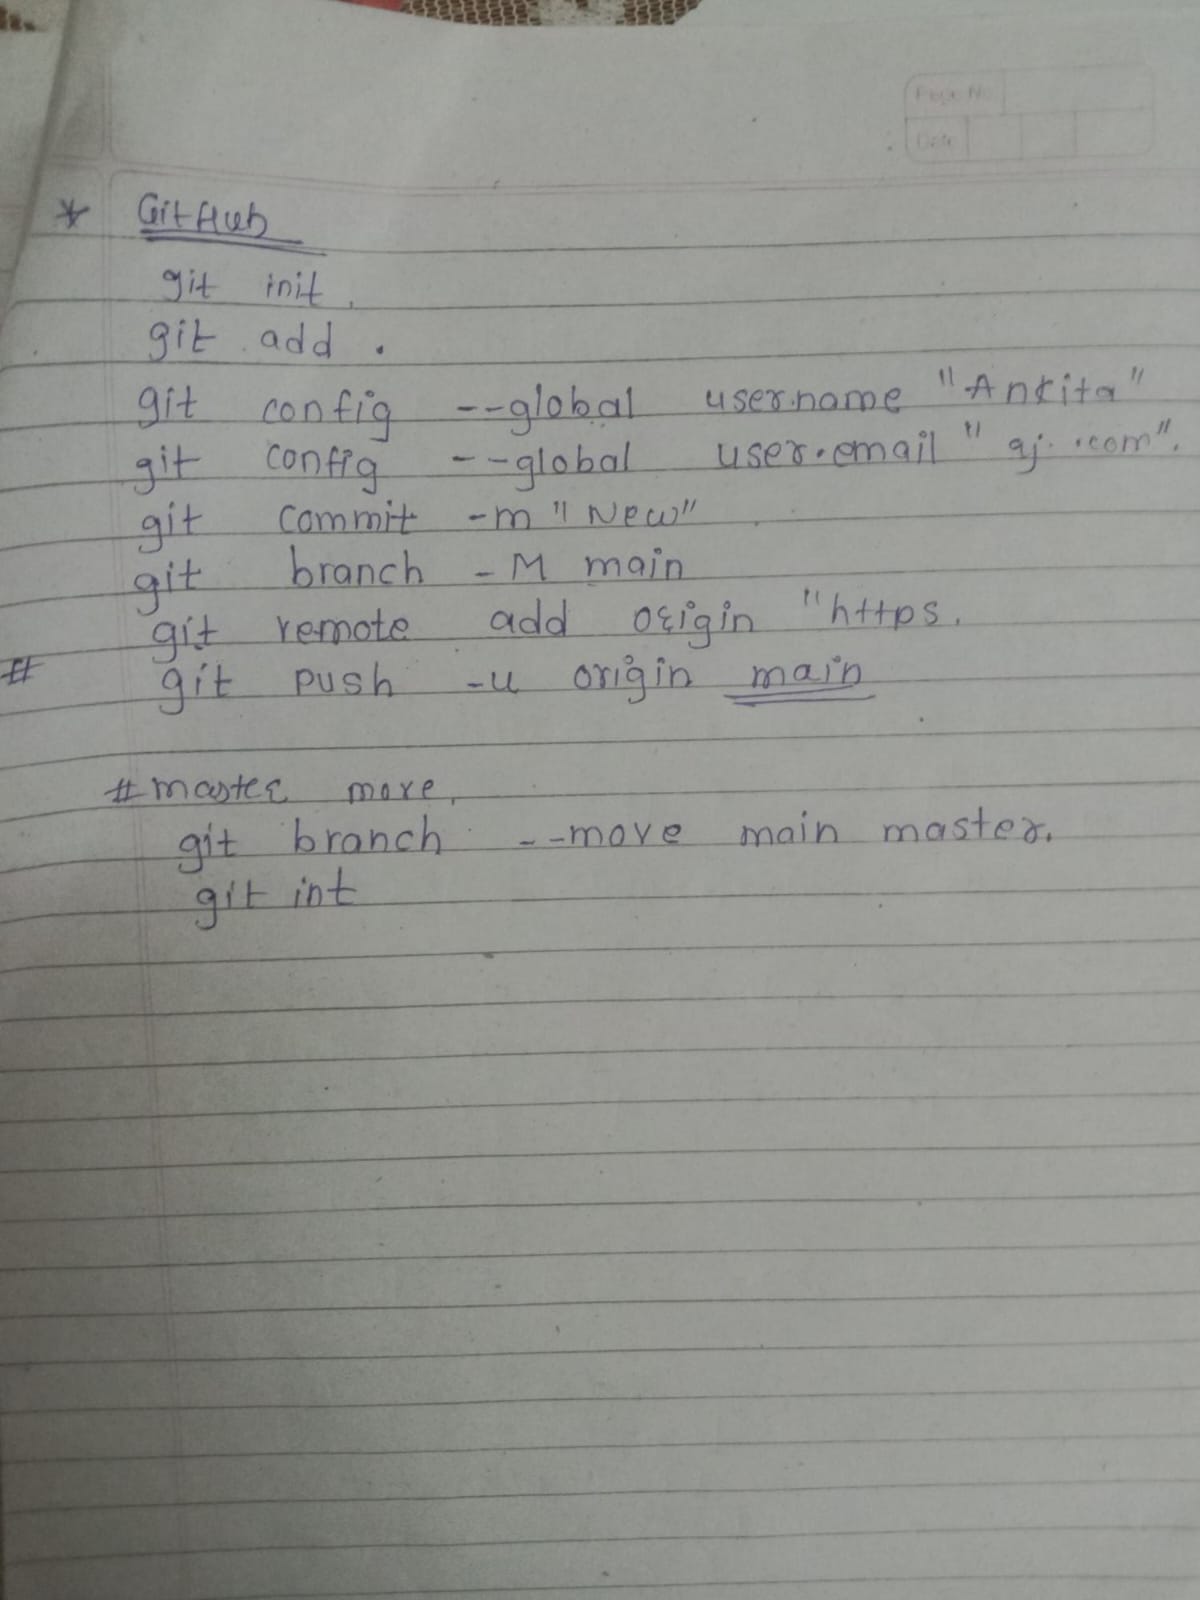 Page No.
Date
* GitHub
git init.
git add .
git config --global user.name "Ankita"
git config --global user.email "aj. .com".
git commit -m "New"
git branch -M main
git remote add origin "https.
# git push -u origin main
# master more.
git branch --move main master.
git int